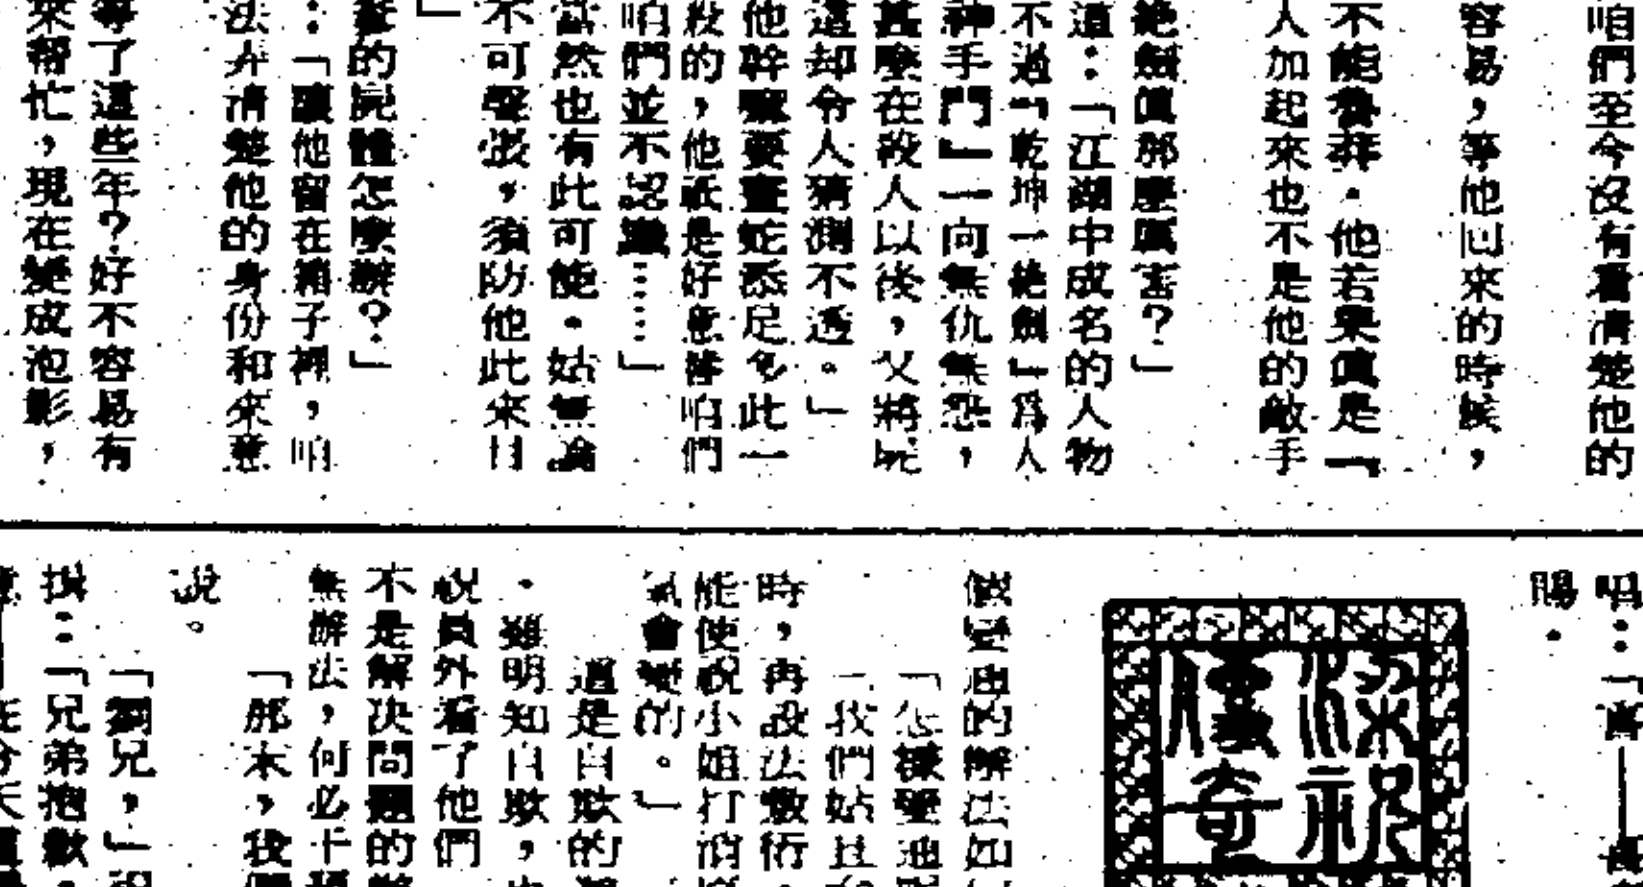 咱們至今沒有看清楚他的
容易，等他回來的時候，
不能魯莽．他若果真是『
人加起來也不是他的敵手
絕劍真那麼厲害？」
道：「江湖中成名的人物
不過『乾坤一絕劍』爲人
神手門』一向無仇無怨，
甚麼在殺人以後，又將屍
這却令人猜測不透。」
他幹嘛要畫蛇添足多此一
殺的，他祇是好意替咱們
咱們並不認識……」
當然也有此可能．姑無論
不可聲張，須防他此來目
」
的屍體怎麼辦？」
：「讓他留在箱子裡，咱
法弄清楚他的身份和來意
等了這些年？好不容易有
來幇忙，現在變成泡影，
唱：「
賜．
梁祝
僊奇
做變通的辦法如
「怎樣變通
「我們姑且
時，再設法敷衍．
能使祝小姐打消
氣會變的。」
這是自欺的
．雖明知自欺，
祝員外看了他們
不是解决問題的
無辦法，何必
「那末，我們
說。
「劉兄，」
揖：「兄弟抱歉．
在今天